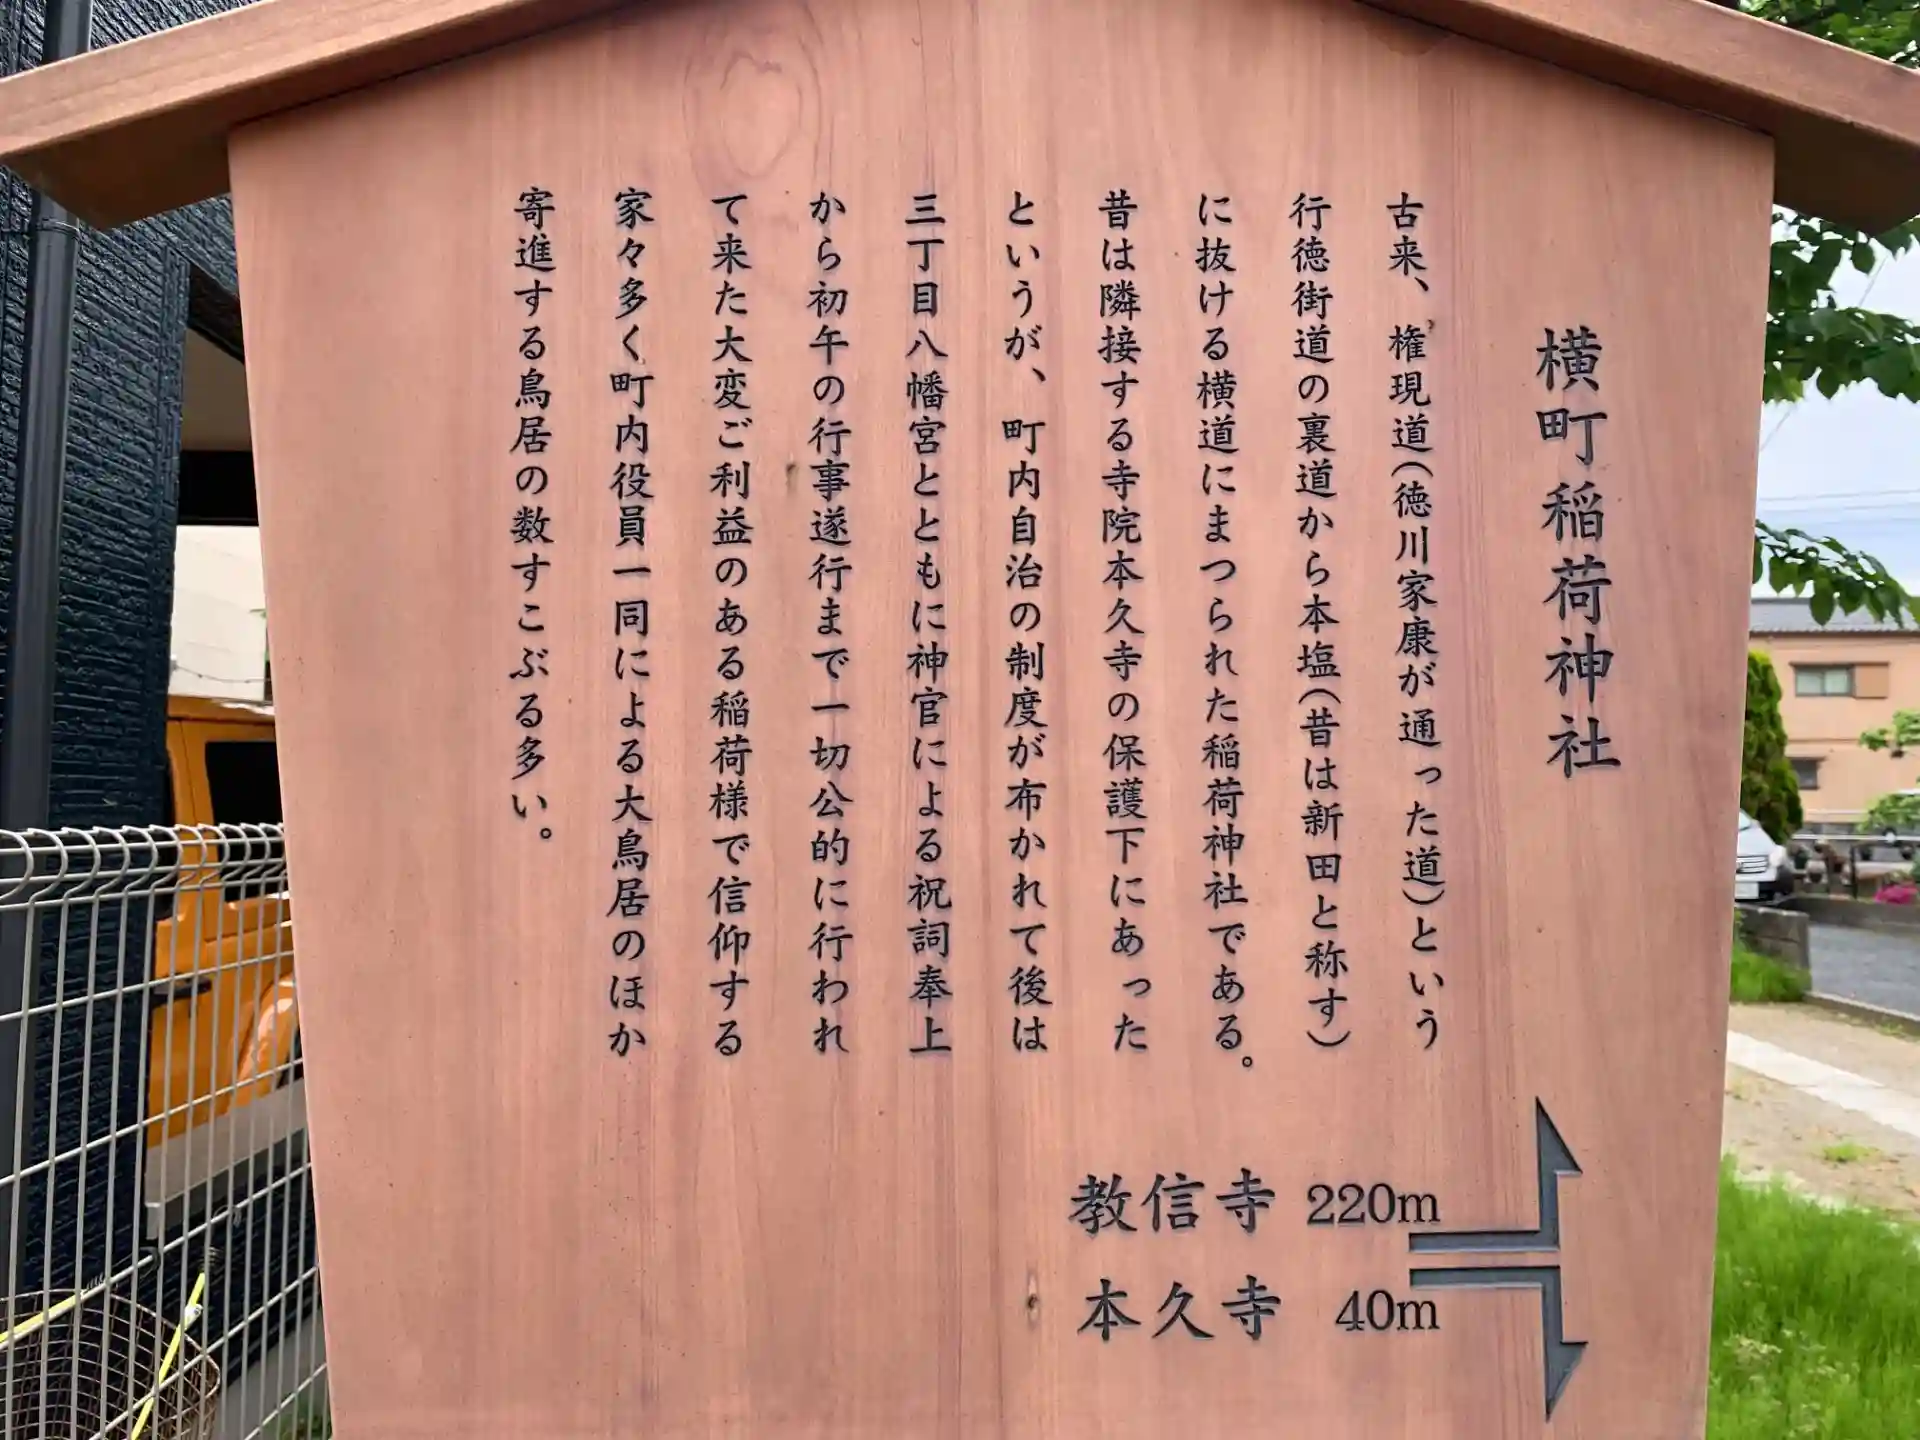 横町稲荷神社
古来、権現道(徳川家康が通った道)という
行徳街道の裏道から本塩(昔は新田と称す)
に抜ける横道にまつられた稲荷神社である。
昔は隣接する寺院本久寺の保護下にあった
というが、町内自治の制度が布かれて後は
三丁目八幡宮とともに神官による祝詞奉上
から初午の行事遂行まで一切公的に行われ
て来た大変ご利益のある稲荷様で信仰する
家々多く町内役員一同による大鳥居のほか
寄進する鳥居の数すこぶる多い。
教信寺 220m
本久寺 40m